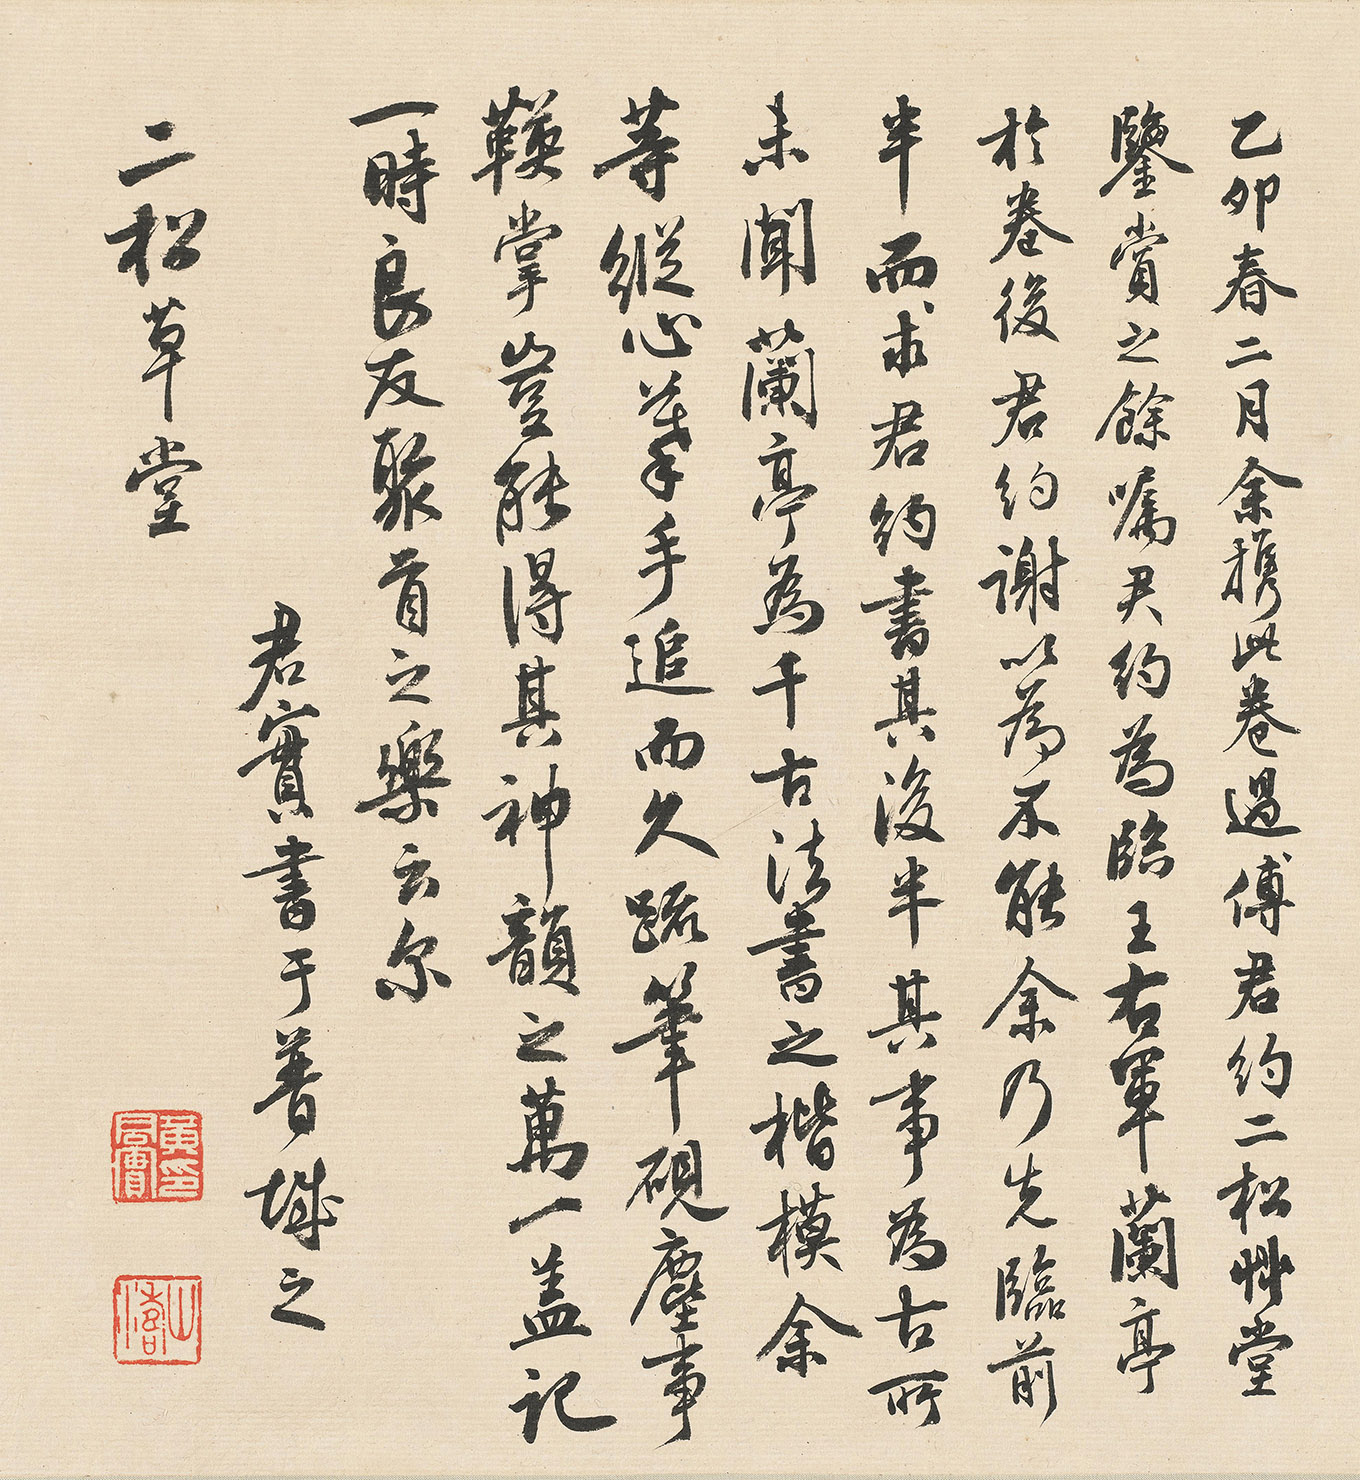 乙卯春二月余携此卷過傅君約二松艸堂
鑒賞之餘囑君約為臨王右軍蘭亭
於卷後君約謝以為不能余乃先臨前
半而求君約書其後半其事為古所
未聞蘭亭為千古法書之楷模余
等縱心摹手追而久疏筆硯塵事
鞅掌豈能得其神韻之萬一盖記
一時良友聚首之樂云尔
君實書于普城之
二松草堂
黃君實印